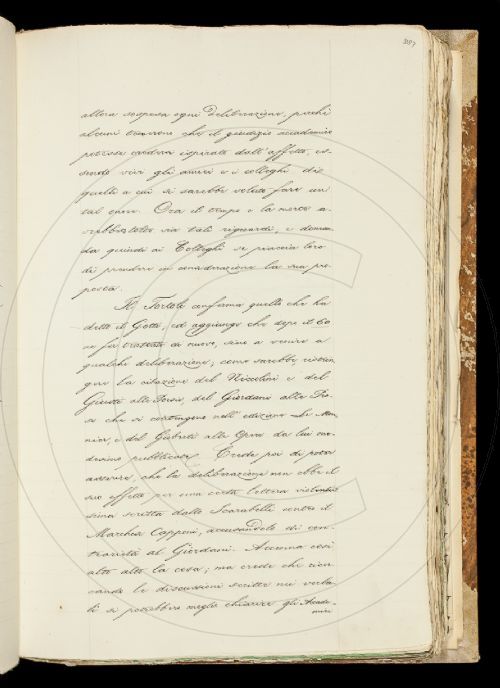 387
allora sospesa ogni deliberazione, perchè
alcuni temerono che il giudizio accademico
potesse credersi ispirato dall'affetto, es-
sendo vivi gli amici e i colleghi di
quelli a cui si sarebbe voluto fare un
tal onore. Ora il tempo e la morte a-
vrebbe tolto via tali riguardi, e doman-
da quindi ai Colleghi se piaccia loro
di prendere in considerazione la sua pro-
posta.
Il Tortoli conferma quello che ha
detto il Gotti, ed aggiunge che dopo il 60
se fu trattato di nuovo, sino a venire a
qualche deliberazione, come sarebbe
la citazione del Niccolini e del
Giusti alle Poesie, del Giordani alle Pro-
se che si contengono nell'edizione Le Mon-
nier, e del Gioberti alle Opere da lui me-
desimo pubblicate. Crede poi di poter
asserire, che la deliberazione non ebbe il
suo effetto per una certa lettera violentis-
sima scritta dallo Scarabelli contro il
Marchese Capponi, accusandolo di con-
trarietà al Giordani. Accenna così
alto alto la cosa; ma crede che ricer-
cando le discussioni scritte nei verba-
li si potrebbero meglio chiarire gli Acade-
mici